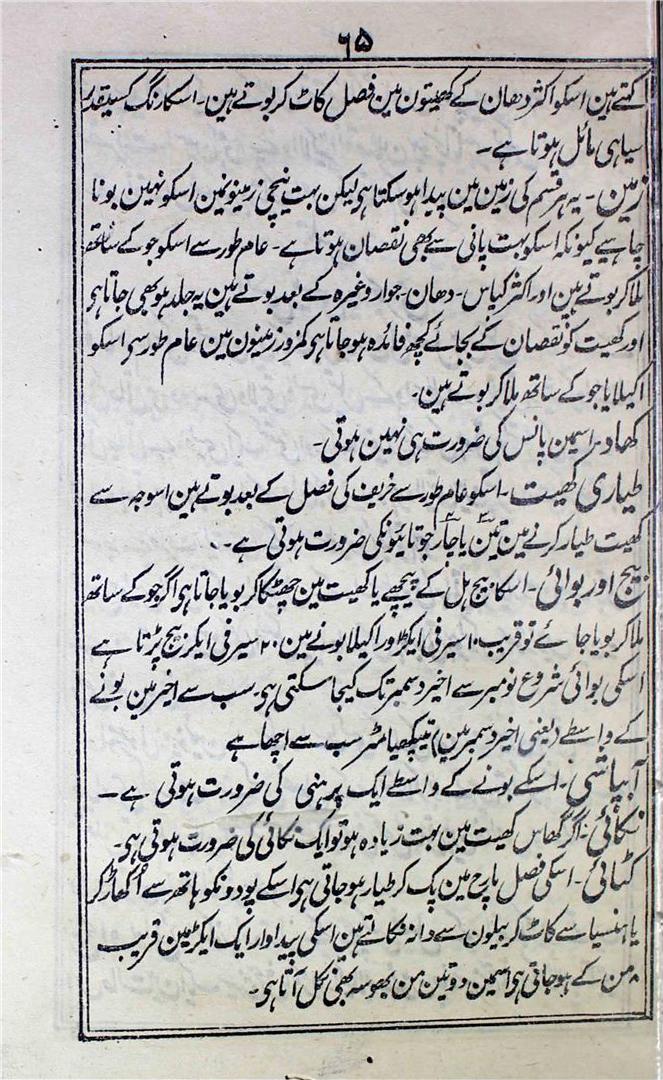 ۶۵
کہتے ہین اسکو اکثر دھان کے کھیتون مین فصل کاٹ کر بوتے ہین۔ اسکا رنگ کسیقدر
سیاہی مائل ہوتا ہے۔
زمین۔ یہ ہر قسم کی زمین مین پیدا ہو سکتا ہی لیکن بہت نیچی زمینونمین اسکو نہین بونا
چاہیے کیونکہ اسکو بہت پانی سے بھی نقصان ہوتا ہے۔ عام طور سے اسکو جو کے ساتھ
ملا کر بوتے ہین اور اکثر کپاس۔ دھان۔ جوار وغیرہ کے بعد بوتے ہین یہ جلد ہو بھی جاتا ہی
اور کھیت کو نقصان کے بجائے کچھ فائدہ ہو جاتا ہی کمزور زمینون مین عام طور سے اسکو
اکیلا یا جو کے ساتھ ملا کر بوتے ہین۔
کھاد۔ اسمین پانس کی ضرورت ہی نہین ہوتی۔
طیاری کھیت۔ اسکو عام طور سے خریف کی فصل کے بعد بوتے ہین اسوجہ سے
کھیت طیار کرنے مین تین یا چار جوتائیونکی ضرورت ہوتی ہے۔
بیج اور بوائی۔ اسکا بیج ہل کے پیچھے یا کھیت مین چھٹکا کر بویا جاتا ہی اگر جو کے ساتھ
ملا کر بویا جائے تو قریب ۱۰ سیر فی ایکڑ اور اکیلا بونے مین ۲۰ سیر فی ایکڑ بیج پڑتا ہے
اسکی بوائی شروع نومبر سے اخیر دسمبر تک کیجا سکتی ہی۔ سب سے اخیر مین بونے
کے واسطے (یعنی اخیر دسمبر مین) تیپکھیا مٹر سب سے اچھا ہے
آبپاشی۔ اسکے بونے کے واسطے ایک پرہنی کی ضرورت ہوتی ہے۔
نکائی۔ اگر گھاس کھیت مین بہت زیادہ ہو تو ایک نکائی کی ضرورت ہوتی ہی۔
کٹائی۔ اسکی فصل مارچ مین پک کر طیار ہو جاتی ہی اسکے پودونکو ہاتھ سے اُکھاڑ کر
یا ہنسیا سے کاٹ کر بیلون سے دانہ نکالتے ہین اسکی پیداوار ایک ایکڑ مین قریب
۸ من کے ہو جاتی ہی اسمین دو تین من بھوسہ بھی نکل آتا ہی۔